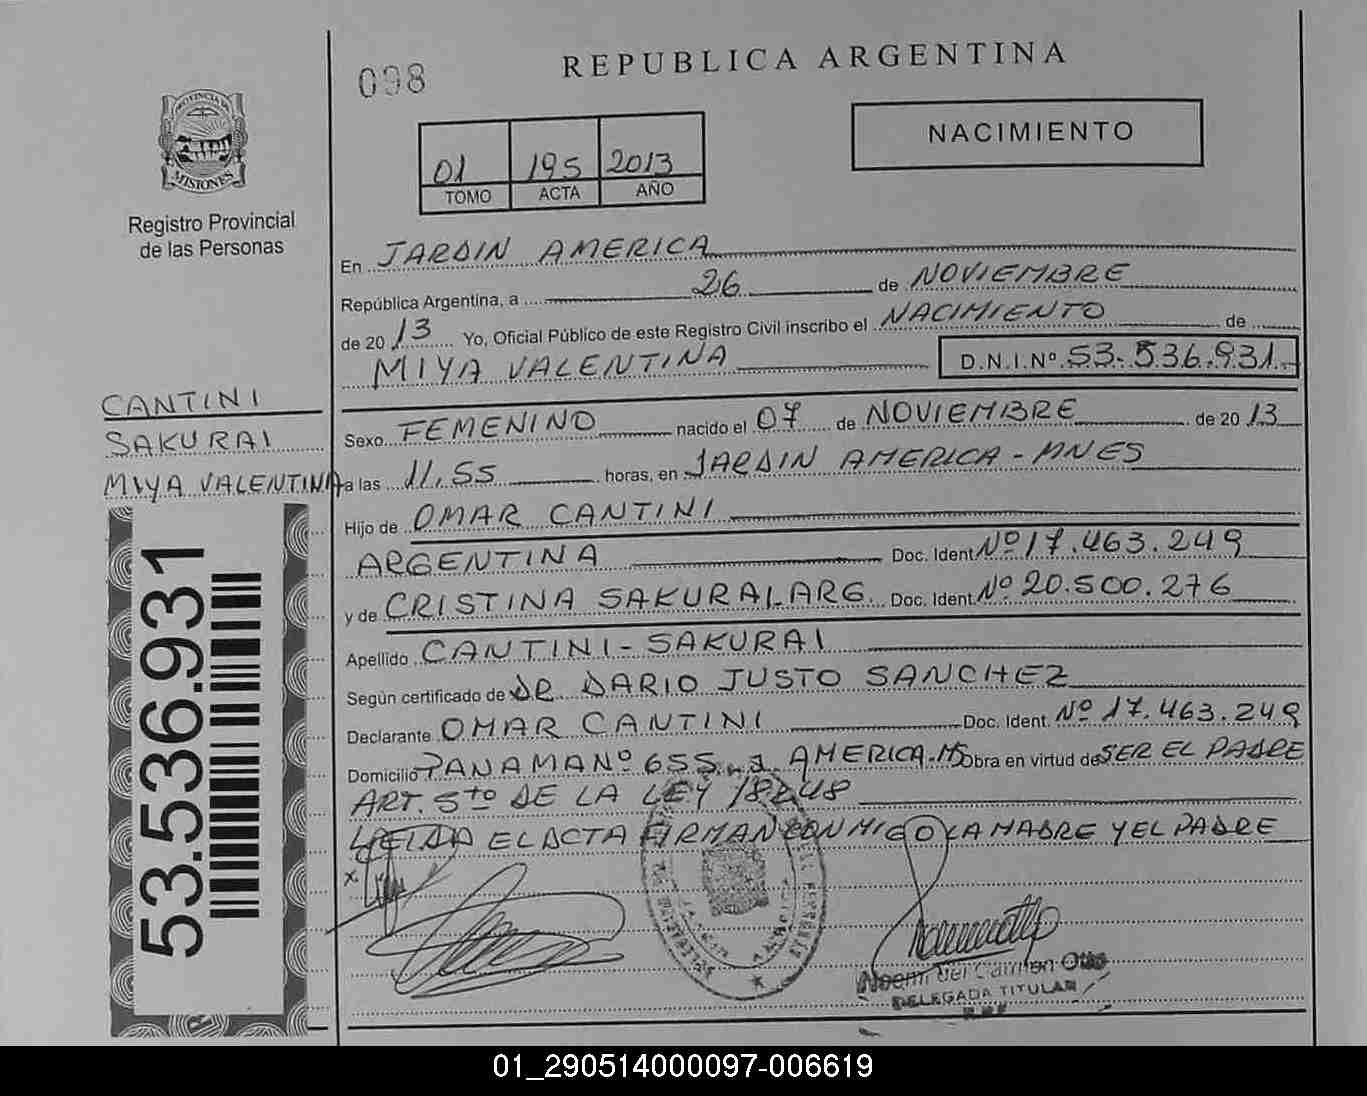 098
REPUBLICA ARGENTINA
NACIMIENTO
01 195 2013
TOMO ACTA AÑO
PROVINCIA DE
MISIONES
Registro Provincial
de las Personas
En JARDIN AMERICA
República Argentina, a 26 de NOVIEMBRE
de 2013 Yo, Oficial Público de este Registro Civil inscribo el NACIMIENTO de
MIYA VALENTINA D.N.I.Nº 53.536.931.-
CANTINI
SAKURAI
MIYA VALENTINA
Sexo FEMENINO nacido el 07 de NOVIEMBRE de 2013
a las 11,55 horas, en JARDIN AMERICA - MNES
Hijo de OMAR CANTINI
ARGENTINA Doc. Ident. Nº 17.463.249
y de CRISTINA SAKURAI ARG. Doc. Ident. Nº 20.500.276
Apellido CANTINI - SAKURAI
Según certificado de DR DARIO JUSTO SANCHEZ
Declarante OMAR CANTINI Doc. Ident. Nº 17.463.249
Domicilio PANAMA Nº 655 J. AMERICA.MS Obra en virtud de SER EL PADRE
ART. 5to DE LA LEY 18248
LEIDA EL ACTA FIRMAN CONMIGO LA MADRE Y EL PADRE
53.536.931
Noemi del Carmen
DELEGADA TITULAR
01_290514000097-006619